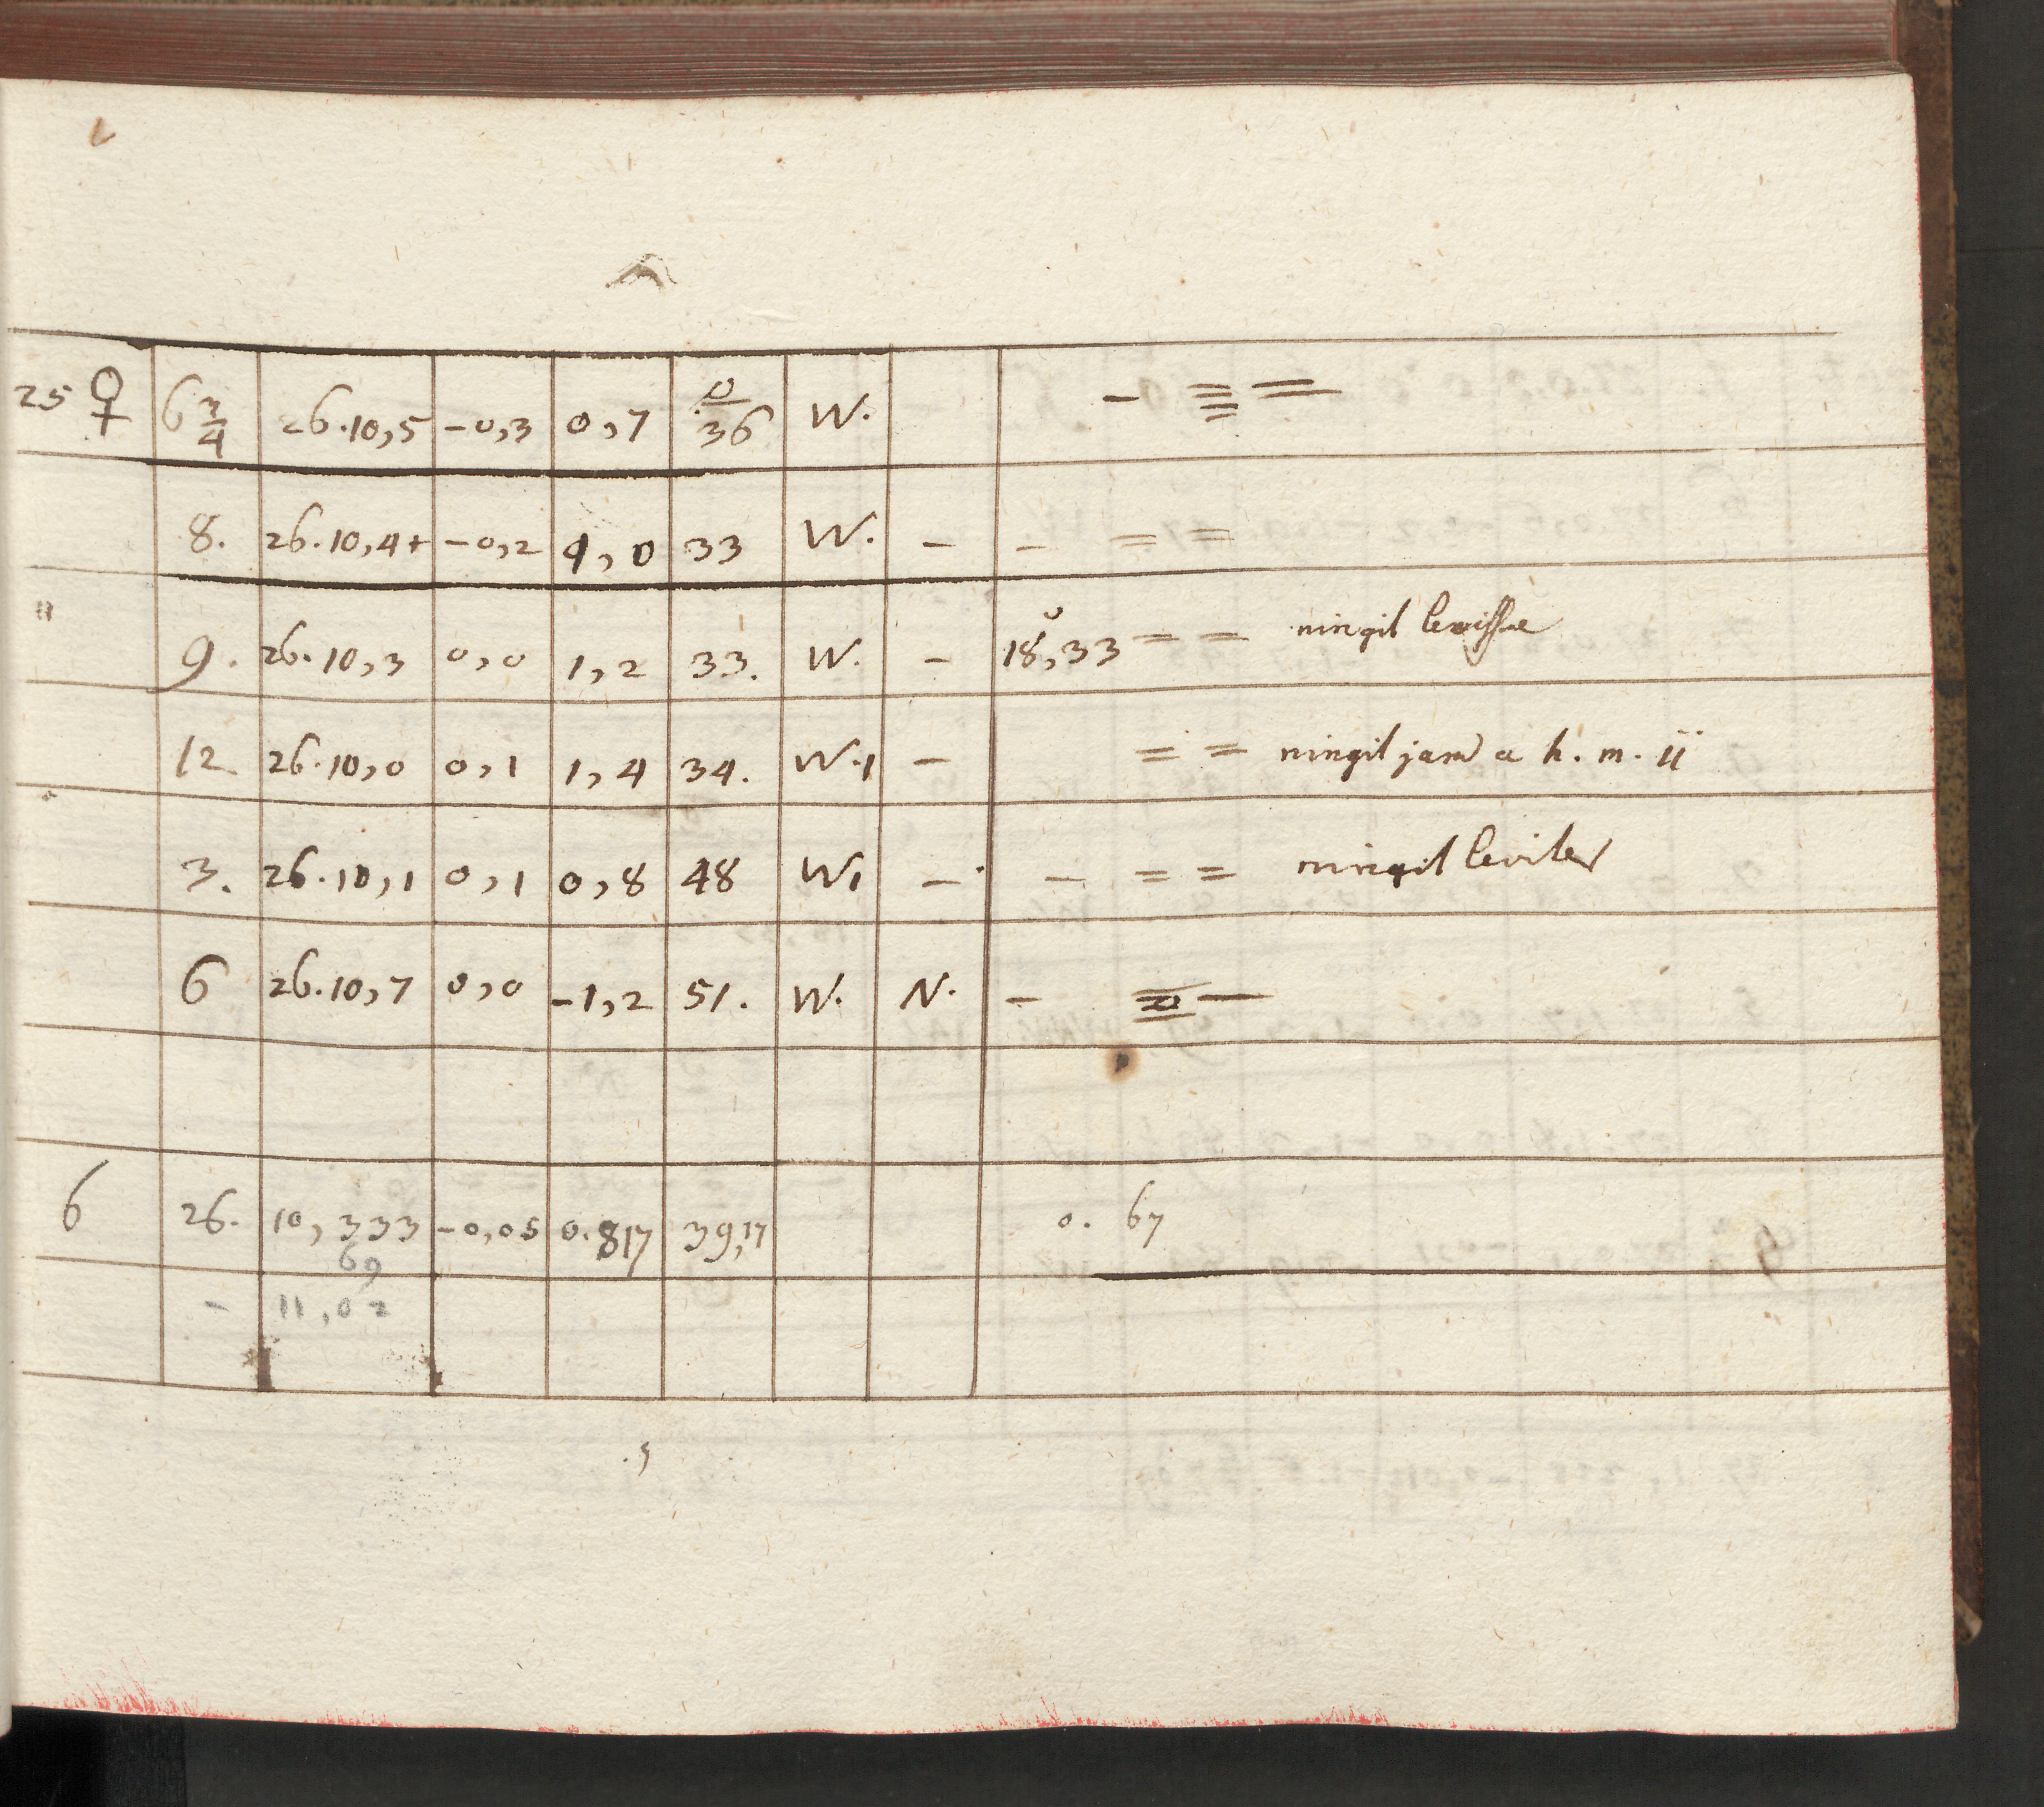 25 ♀ 6 3/4 26.10,5 -0,3 0,7 0/36 W. - ≡ =
8. 26.10,4+ -0,2 1,0 33 W. - - = =
9. 26.10,3 0,0 1,2 33. W. - 18,33 = = ningit leviss̄e
12 26.10,0 0,1 1,4 34. W.1 - = = ningit jam a h. m. 11
3. 26.10,1 0,1 0,8 48 W1 - - = = ningit leviter
6 26.10,7 0,0 -1,2 51. W. N. - = -
6 26. 10,333 -0,05 0.817 39,17 0. 67
69
- 11,02